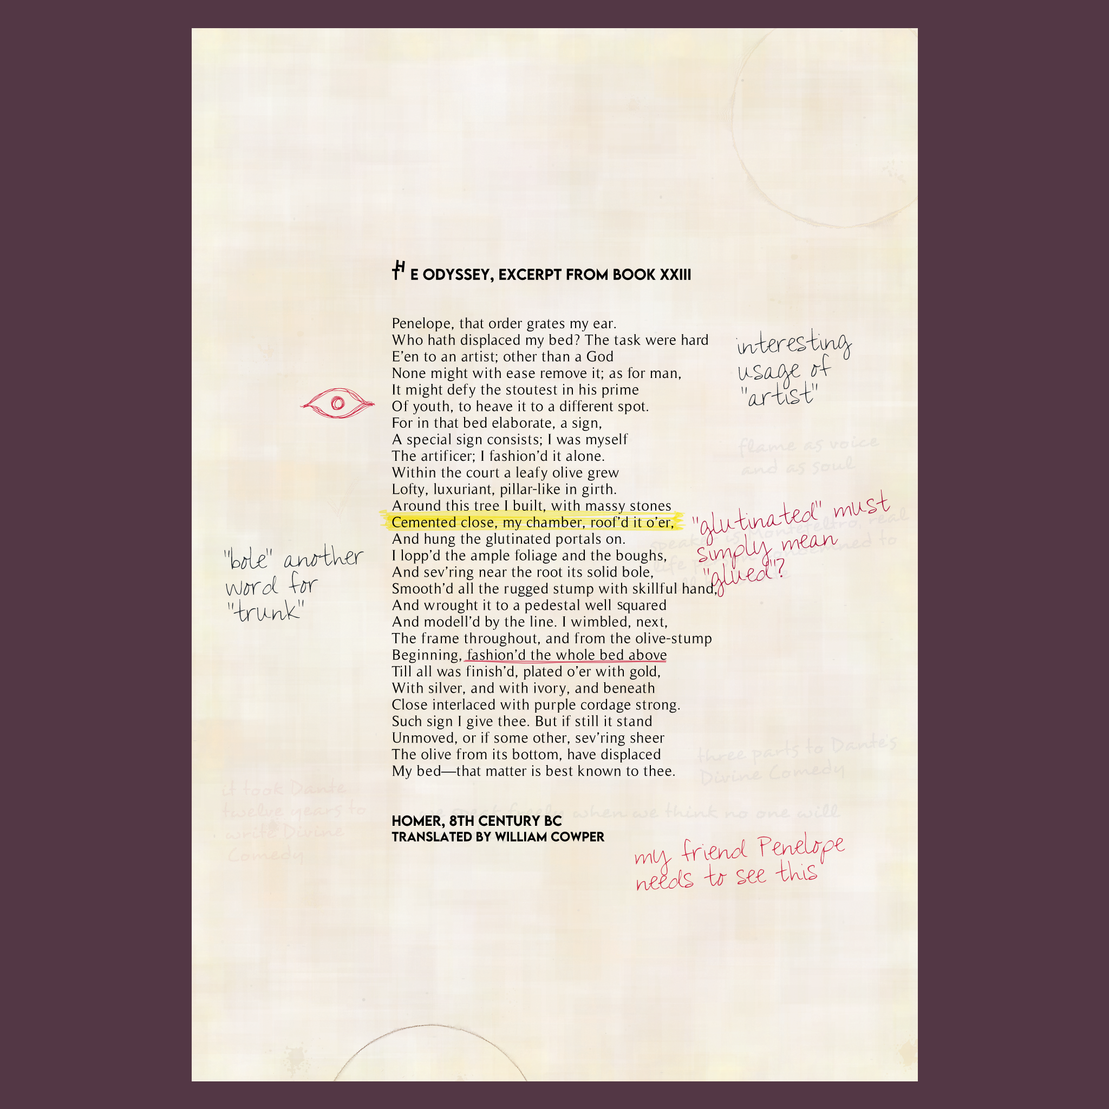 THE ODYSSEY, EXCERPT FROM BOOK XXIII
Penelope, that order grates my ear.
Who hath displaced my bed? The task were hard
E'en to an artist; other than a God
None might with ease remove it; as for man,
It might defy the stoutest in his prime
Of youth, to heave it to a different spot.
For in that bed elaborate, a sign,
A special sign consists; I was myself
The artificer; I fashion'd it alone.
Within the court a leafy olive grew
Lofty, luxuriant, pillar-like in girth.
Around this tree I built, with massy stones
Cemented close, my chamber, roof'd it o'er,
And hung the glutinated portals on.
I lopp'd the ample foliage and the boughs,
And sev'ring near the root its solid bole,
Smooth'd all the rugged stump with skillful hand,
And wrought it to a pedestal well squared
And modell'd by the line. I wimbled, next,
The frame throughout, and from the olive-stump
Beginning, fashion'd the whole bed above
Till all was finish'd, plated o'er with gold,
With silver, and with ivory, and beneath
Close interlaced with purple cordage strong.
Such sign I give thee. But if still it stand
Unmoved, or if some other, sev'ring sheer
The olive from its bottom, have displaced
My bed—that matter is best known to thee.
HOMER, 8TH CENTURY BC
TRANSLATED BY WILLIAM COWPER
interesting
usage of
"artist"
flame as voice
and as soul
"glutinated" must
simply mean
"glued"?
"bole" another
word for
"trunk"
three parts to Dante's
Divine Comedy
it took Dante
twelve years to
write Divine
Comedy
when we think no one will
my friend Penelope
needs to see this